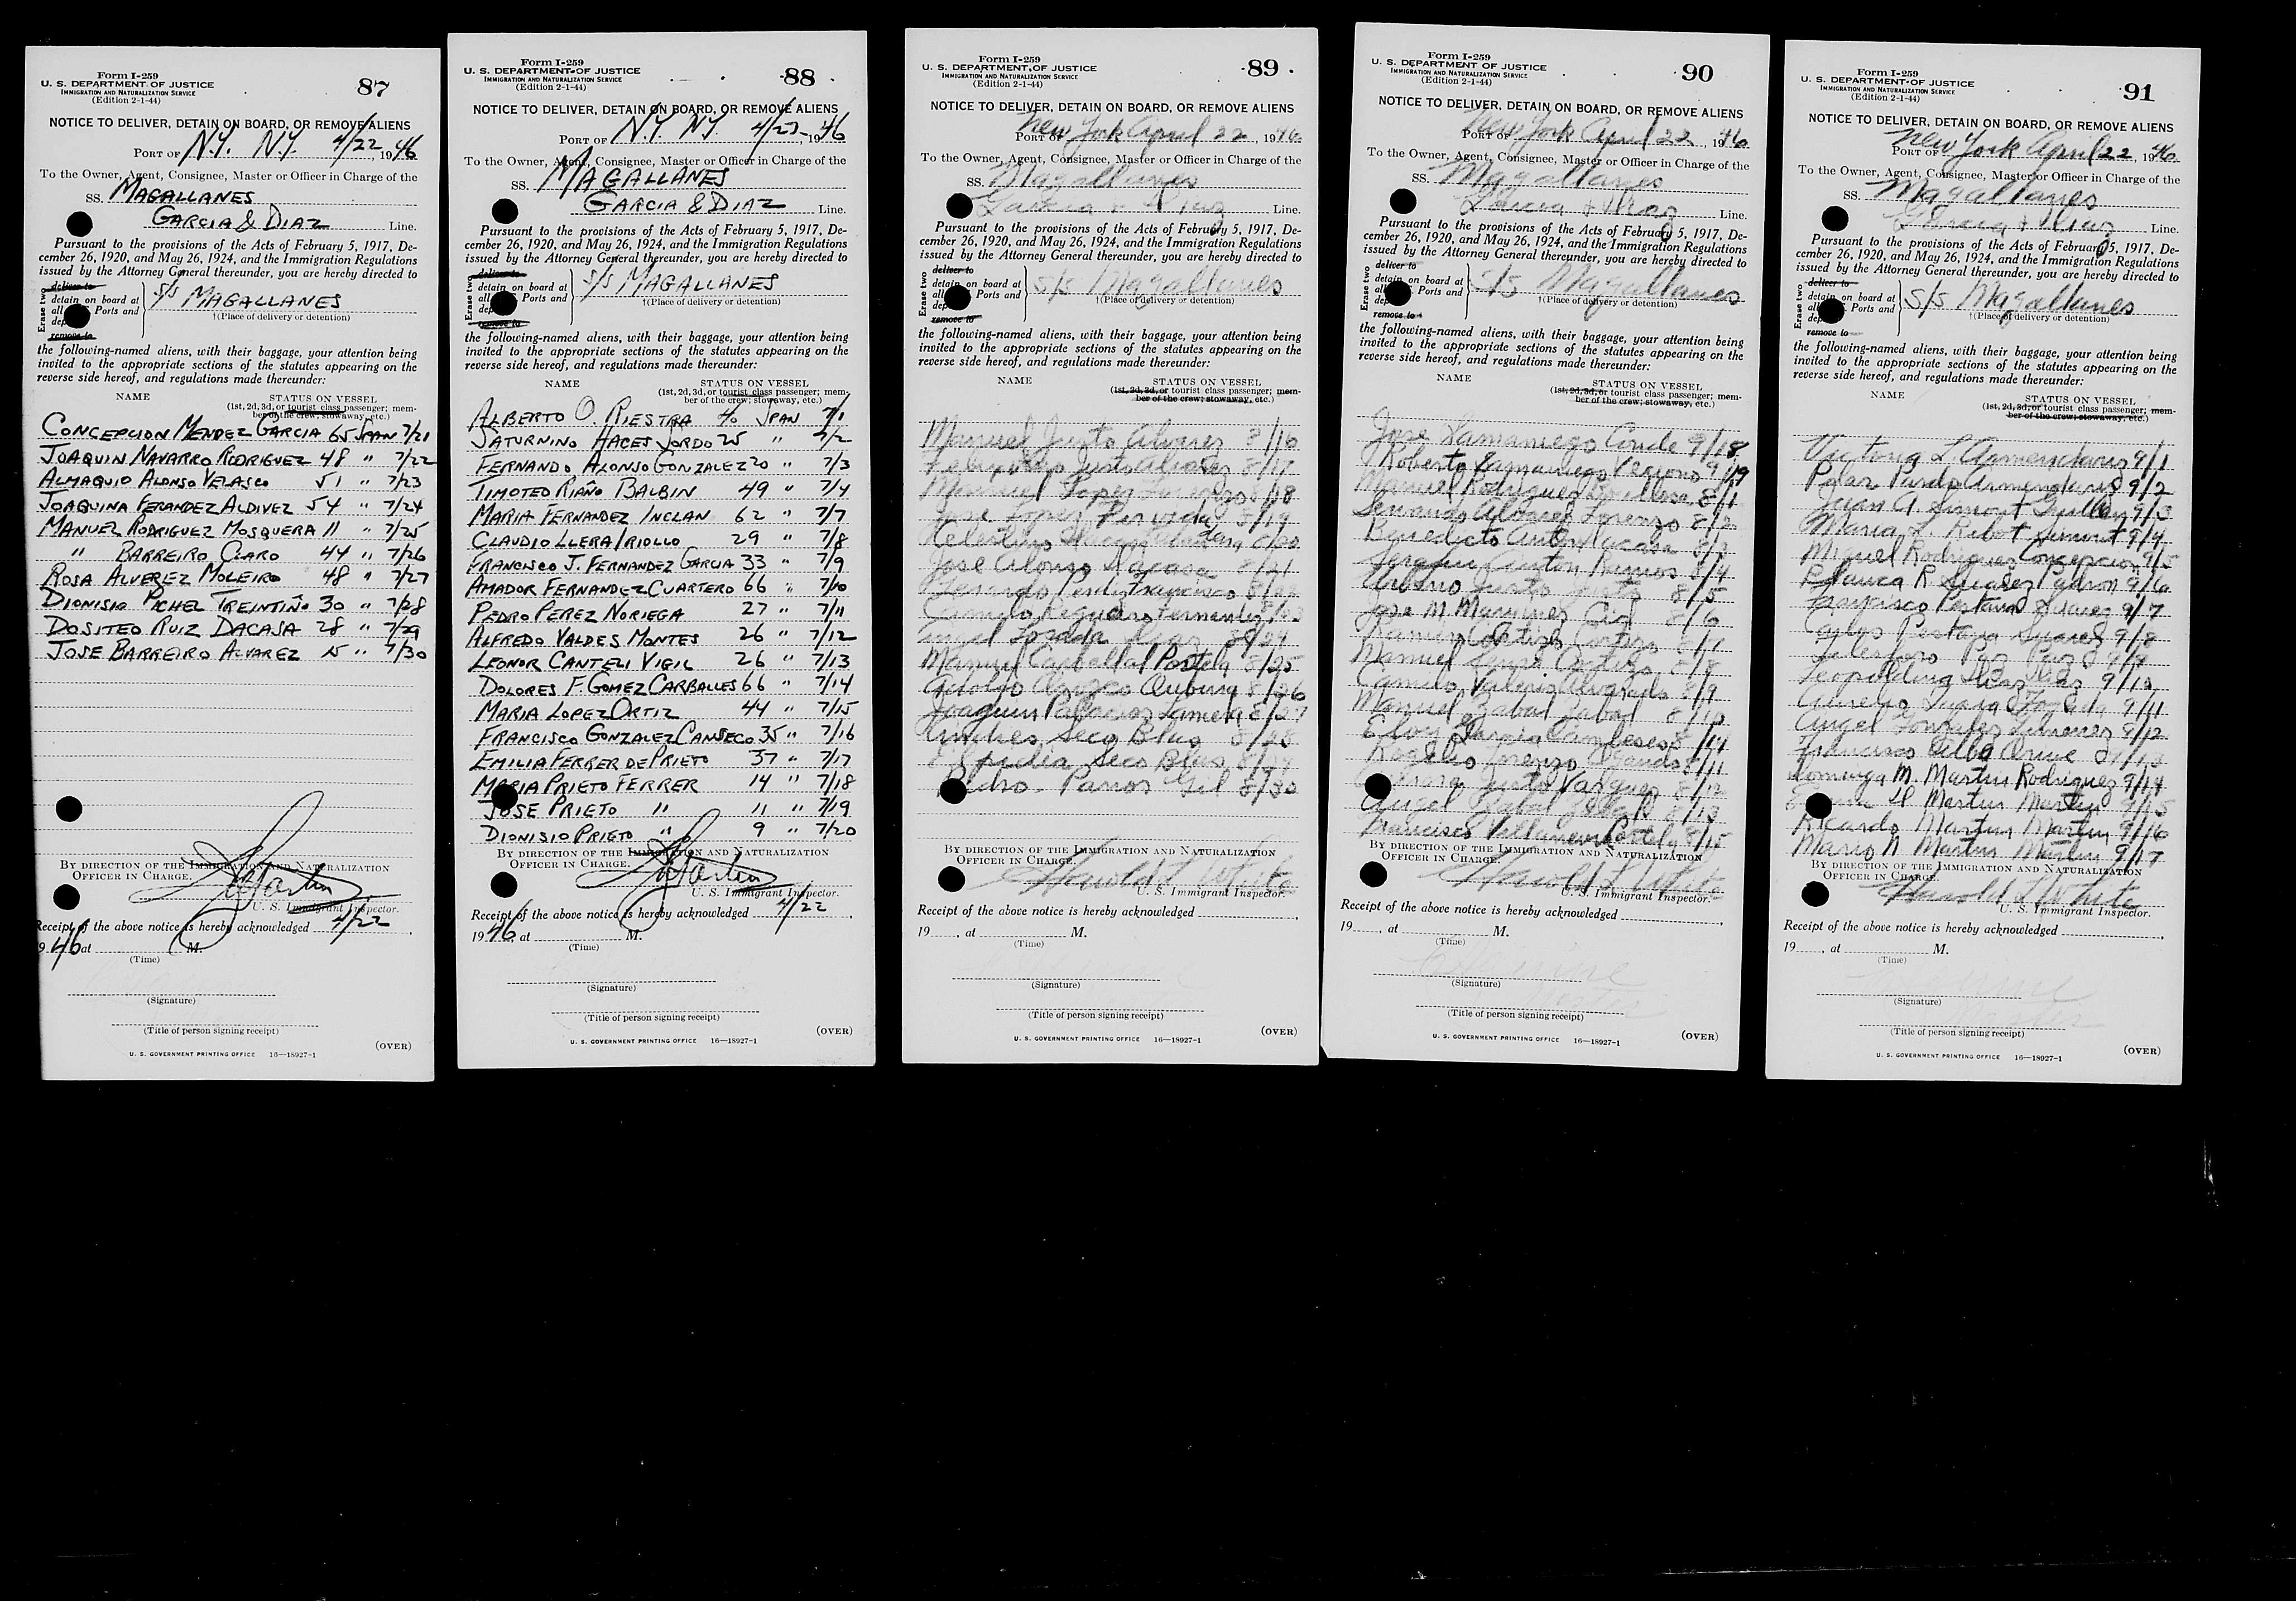 Form I-259
U. S. DEPARTMENT OF JUSTICE
IMMIGRATION AND NATURALIZATION SERVICE
(Edition 2-1-44)
87
NOTICE TO DELIVER, DETAIN ON BOARD, OR REMOVE ALIENS
PORT OF N.Y. N.Y. 4/22, 1946
To the Owner, Agent, Consignee, Master or Officer in Charge of the
SS. MAGALLANES
GARCIA & DIAZ Line.
Pursuant to the provisions of the Acts of February 5, 1917, De-
cember 26, 1920, and May 26, 1924, and the Immigration Regulations
issued by the Attorney General thereunder, you are hereby directed to
Erase two
deliver to
detain on board at
all Ports and
S/S MAGALLANES
†(Place of delivery or detention)
remove to
the following-named aliens, with their baggage, your attention being
invited to the appropriate sections of the statutes appearing on the
reverse side hereof, and regulations made thereunder:
NAME STATUS ON VESSEL
(1st, 2d, 3d, or tourist class passenger; mem-
ber of the crew; stowaway, etc.)
CONCEPCION MENDEZ GARCIA 65 SPAN 7/21
JOAQUIN NAVARRO RODRIGUEZ 48 " 7/22
ALMAQUIO ALONSO VELASCO 51 " 7/23
JOAQUINA FERANDEZ ALDIVEZ 54 " 7/24
MANUEL RODRIGUEZ MOSQUERA 11 " 7/25
" BARREIRO CLARO 44 " 7/26
ROSA ALVEREZ MOLEIRO 48 " 7/27
DIONISIO PICHEL TREINTIÑO 30 " 7/28
DOSITEO RUIZ DACASA 28 " 7/29
JOSE BARREIRO ALVAREZ 15 " 7/30
BY DIRECTION OF THE IMMIGRATION AND NATURALIZATION
OFFICER IN CHARGE.
U. S. Immigrant Inspector.
Receipt of the above notice is hereby acknowledged 4/22,
1946 at M.
(Time)
(Signature)
(Title of person signing receipt)
(OVER)
U. S. GOVERNMENT PRINTING OFFICE 16—18927-1
Form I-259
U. S. DEPARTMENT OF JUSTICE
IMMIGRATION AND NATURALIZATION SERVICE
(Edition 2-1-44)
88
NOTICE TO DELIVER, DETAIN ON BOARD, OR REMOVE ALIENS
PORT OF N.Y. N.Y. 4/22, 1946
To the Owner, Agent, Consignee, Master or Officer in Charge of the
SS. MAGALLANES
GARCIA & DIAZ Line.
Pursuant to the provisions of the Acts of February 5, 1917, De-
cember 26, 1920, and May 26, 1924, and the Immigration Regulations
issued by the Attorney General thereunder, you are hereby directed to
Erase two
deliver to
detain on board at
all Ports and
S/S MAGALLANES
†(Place of delivery or detention)
remove to
the following-named aliens, with their baggage, your attention being
invited to the appropriate sections of the statutes appearing on the
reverse side hereof, and regulations made thereunder:
NAME STATUS ON VESSEL
(1st, 2d, 3d, or tourist class passenger; mem-
ber of the crew; stowaway, etc.)
ALBERTO O. RIESTRA SPAN 7/1
SATURNINO HACES SORDO 25 " 7/2
FERNANDO ALONSO GONZALEZ 20 " 7/3
TIMOTEO RIAÑO BALBIN 49 " 7/4
MARIA FERNANDEZ INCLAN 62 " 7/7
CLAUDIO LLERA 29 " 7/8
FRANCISCO J. FERNANDEZ GARCIA 33 " 7/9
AMADOR FERNANDEZ CUARTERO 66 " 7/10
PEDRO PEREZ NORIEGA 27 " 7/11
ALFREDO VALDES MONTES 26 " 7/12
LEONOR CANTELI VIGIL 26 " 7/13
DOLORES F. GOMEZ CARBALLES 66 " 7/14
MARIA LOPEZ ORTIZ 44 " 7/15
FRANCISCO GONZALEZ CANSECO 35 " 7/16
EMILIA FERRER DE PRIETO 37 " 7/17
MARIA PRIETO FERRER 14 " 7/18
JOSE PRIETO " 11 " 7/19
DIONISIO PRIETO " 9 " 7/20
BY DIRECTION OF THE IMMIGRATION AND NATURALIZATION
OFFICER IN CHARGE.
U. S. Immigrant Inspector.
Receipt of the above notice is hereby acknowledged 4/22,
1946, at M.
(Time)
(Signature)
(Title of person signing receipt)
(OVER)
U. S. GOVERNMENT PRINTING OFFICE 16—18927-1
Form I-259
U. S. DEPARTMENT OF JUSTICE
IMMIGRATION AND NATURALIZATION SERVICE
(Edition 2-1-44)
89
NOTICE TO DELIVER, DETAIN ON BOARD, OR REMOVE ALIENS
PORT OF New York April 22, 1946
To the Owner, Agent, Consignee, Master or Officer in Charge of the
SS. Magallanes
Garcia & Diaz Line.
Pursuant to the provisions of the Acts of February 5, 1917, De-
cember 26, 1920, and May 26, 1924, and the Immigration Regulations
issued by the Attorney General thereunder, you are hereby directed to
Erase two
deliver to
detain on board at
all Ports and
S/S Magallanes
†(Place of delivery or detention)
remove to
the following-named aliens, with their baggage, your attention being
invited to the appropriate sections of the statutes appearing on the
reverse side hereof, and regulations made thereunder:
NAME STATUS ON VESSEL
(1st, 2d, 3d, or tourist class passenger; mem-
ber of the crew; stowaway, etc.)
Manuel Justo Alvarez 8/16
Justo 8/17
Manuel Lopez 8/18
Jose Lopez 8/19
Celestino 8/20
Jose Alonso Dacasa 8/21
Francisco 8/22
Camilo Fernandez 8/23
8/24
Manuel Carballal Postela 8/25
Adolfo 8/26
Joaquin Palacios Lamela 8/27
Andres Seco Blas 8/28
Seco Blas 8/29
Pedro Parros Gil 8/30
BY DIRECTION OF THE IMMIGRATION AND NATURALIZATION
OFFICER IN CHARGE.
Harold L White
U. S. Immigrant Inspector.
Receipt of the above notice is hereby acknowledged
19 , at M.
(Time)
(Signature)
(Title of person signing receipt)
(OVER)
U. S. GOVERNMENT PRINTING OFFICE 16—18927-1
Form I-259
U. S. DEPARTMENT OF JUSTICE
IMMIGRATION AND NATURALIZATION SERVICE
(Edition 2-1-44)
90
NOTICE TO DELIVER, DETAIN ON BOARD, OR REMOVE ALIENS
PORT OF New York April 22, 1946
To the Owner, Agent, Consignee, Master or Officer in Charge of the
SS. Magallanes
Garcia & Diaz Line.
Pursuant to the provisions of the Acts of February 5, 1917, De-
cember 26, 1920, and May 26, 1924, and the Immigration Regulations
issued by the Attorney General thereunder, you are hereby directed to
Erase two
deliver to
detain on board at
all Ports and
S/S Magallanes
†(Place of delivery or detention)
remove to
the following-named aliens, with their baggage, your attention being
invited to the appropriate sections of the statutes appearing on the
reverse side hereof, and regulations made thereunder:
NAME STATUS ON VESSEL
(1st, 2d, 3d, or tourist class passenger; mem-
ber of the crew; stowaway, etc.)
Jose Samaniego Conde 9/18
Roberto Samaniego 9/19
Manuel Rodriguez 8/1
Lorenzo 8/2
Benedicto Anton Lacasa 8/3
Anton Ramos 8/4
Justo 8/5
Jose M Martinez Cid 8/6
Ramon Cortizo Cortizo 8/7
Manuel Cortizo 8/8
Camilo Valerio 8/9
Manuel Zabal Zabal 8/10
Eloy Garcia 8/14
Rogelio Lorenzo 8/11
Justo Vasquez 8/12
Angel Zabal 8/13
Francisco Villanueva Portela 8/15
BY DIRECTION OF THE IMMIGRATION AND NATURALIZATION
OFFICER IN CHARGE.
Harold L White
U. S. Immigrant Inspector.
Receipt of the above notice is hereby acknowledged
19 , at M.
(Time)
(Signature)
(Title of person signing receipt)
(OVER)
U. S. GOVERNMENT PRINTING OFFICE 16—18927-1
Form I-259
U. S. DEPARTMENT OF JUSTICE
IMMIGRATION AND NATURALIZATION SERVICE
(Edition 2-1-44)
91
NOTICE TO DELIVER, DETAIN ON BOARD, OR REMOVE ALIENS
PORT OF New York April 22, 1946
To the Owner, Agent, Consignee, Master or Officer in Charge of the
SS. Magallanes
Garcia & Diaz Line.
Pursuant to the provisions of the Acts of February 5, 1917, De-
cember 26, 1920, and May 26, 1924, and the Immigration Regulations
issued by the Attorney General thereunder, you are hereby directed to
Erase two
deliver to
detain on board at
all Ports and
S/S Magallanes
†(Place of delivery or detention)
remove to
the following-named aliens, with their baggage, your attention being
invited to the appropriate sections of the statutes appearing on the
reverse side hereof, and regulations made thereunder:
NAME STATUS ON VESSEL
(1st, 2d, 3d, or tourist class passenger; mem-
ber of the crew; stowaway, etc.)
Victoria L. Armendariz 9/1
Pilar Pardo Armendariz 9/2
Juan A. Simont Guillen 9/3
Maria L Ribot Simont 9/4
Miguel Rodriguez Concepcion 9/5
Blanca R Suarez Padron 9/6
Francisco Pestana Suarez 9/7
Carlos Pestana Suarez 9/8
Telesforo 9/9
Leopoldina Diaz 9/10
Aurelio 9/11
Angel Gonzalez Jimenez 9/12
Francisco 9/13
Dominga M. Martin Rodriguez 9/14
Martin Martin 9/15
Ricardo Martin Martin 9/16
Mario N Martin Martin 9/17
BY DIRECTION OF THE IMMIGRATION AND NATURALIZATION
OFFICER IN CHARGE.
Harold L White
U. S. Immigrant Inspector.
Receipt of the above notice is hereby acknowledged
19 , at M.
(Time)
(Signature)
(Title of person signing receipt)
(OVER)
U. S. GOVERNMENT PRINTING OFFICE 16—18927-1